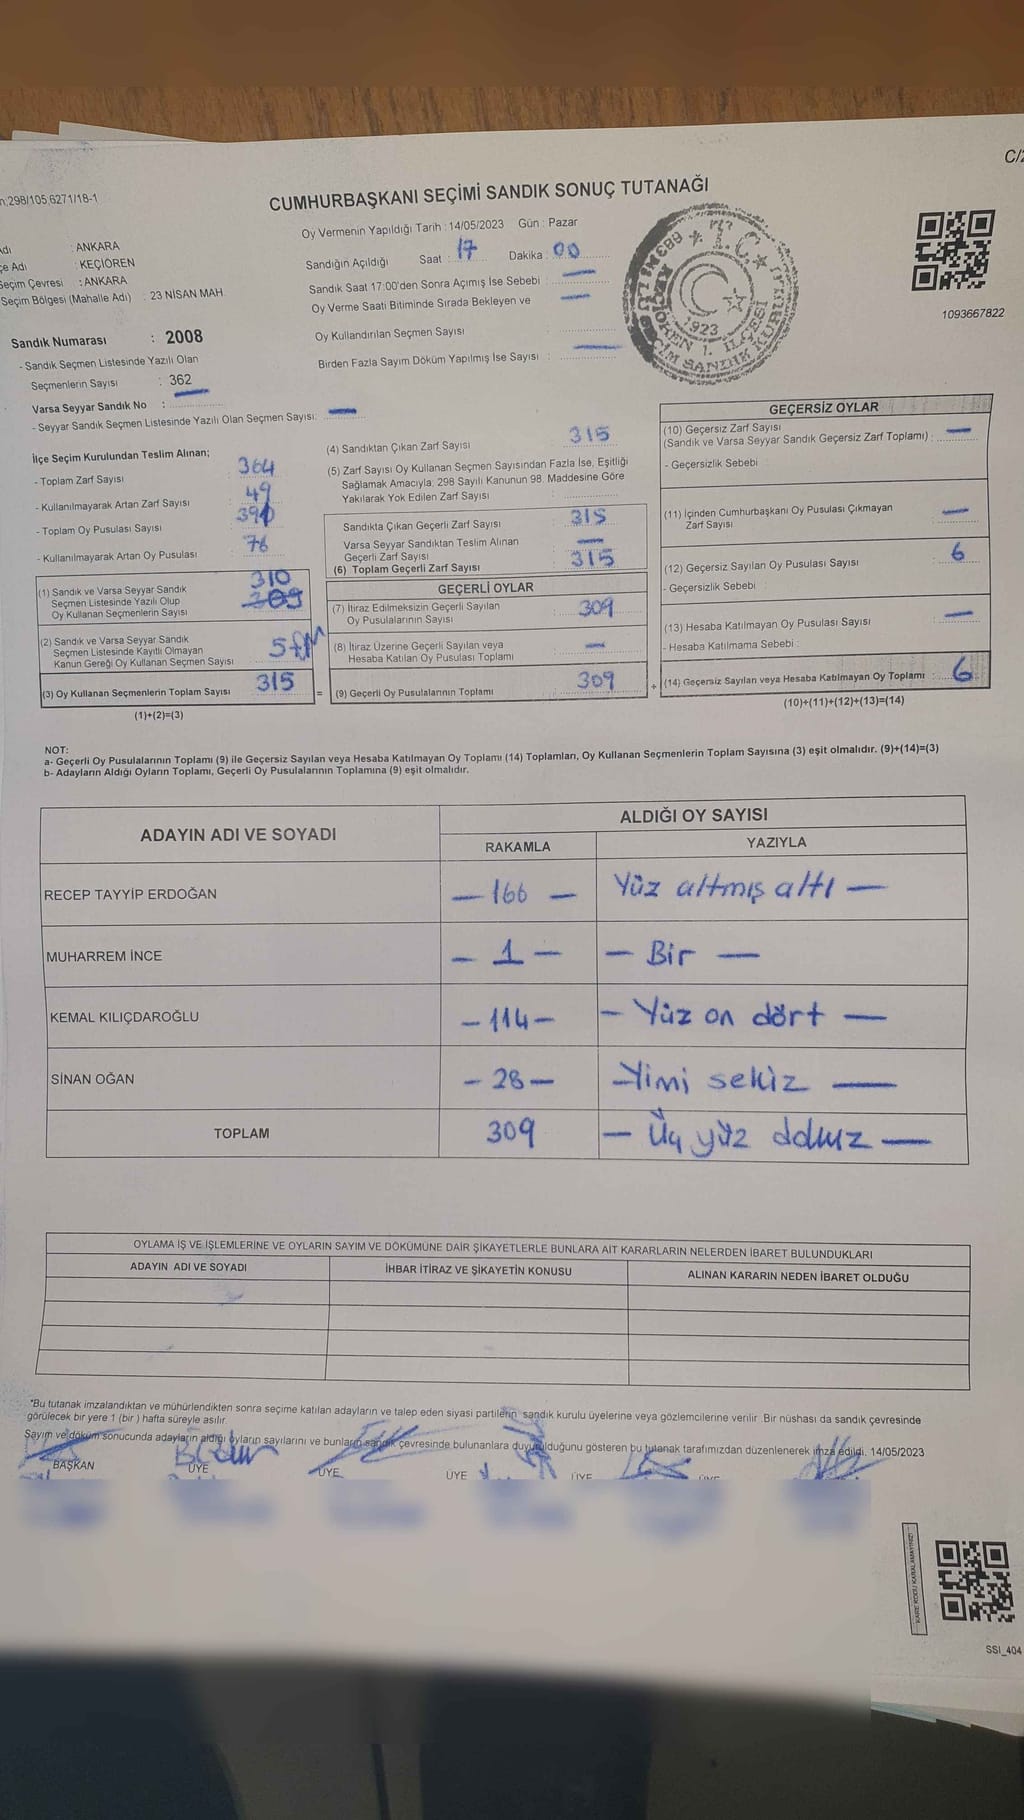 C/2
298/105,6271/18-1
CUMHURBAŞKANI SEÇİMİ SANDIK SONUÇ TUTANAĞI
Oy Vermenin Yapıldığı Tarih : 14/05/2023 Gün : Pazar
Sandığın Açıldığı Saat : 17 Dakika : 00
Sandık Saat 17:00'den Sonra Açımış İse Sebebi : —
Oy Verme Saati Bitiminde Sırada Bekleyen ve —
Oy Kullandırılan Seçmen Sayısı
Birden Fazla Sayım Döküm Yapılmış İse Sayısı : —
T.C.
1923
SANDIK KURULU
1093667822
: ANKARA
Adı : KEÇİÖREN
Seçim Çevresi : ANKARA
Seçim Bölgesi (Mahalle Adı) : 23 NİSAN MAH.
Sandık Numarası : 2008
- Sandık Seçmen Listesinde Yazılı Olan
Seçmenlerin Sayısı : 362
Varsa Seyyar Sandık No : —
- Seyyar Sandık Seçmen Listesinde Yazılı Olan Seçmen Sayısı: —
İlçe Seçim Kurulundan Teslim Alınan;
- Toplam Zarf Sayısı : 364
- Kullanılmayarak Artan Zarf Sayısı : 49
- Toplam Oy Pusulası Sayısı
- Kullanılmayarak Artan Oy Pusulası : 76
(1) Sandık ve Varsa Seyyar Sandık
Seçmen Listesinde Yazılı Olup
Oy Kullanan Seçmenlerin Sayısı
310
309
(2) Sandık ve Varsa Seyyar Sandık
Seçmen Listesinde Kayıtlı Olmayan
Kanun Gereği Oy Kullanan Seçmen Sayısı
5
(3) Oy Kullanan Seçmenlerin Toplam Sayısı 315
(1)+(2)=(3)
(4) Sandıktan Çıkan Zarf Sayısı 315
(5) Zarf Sayısı Oy Kullanan Seçmen Sayısından Fazla İse, Eşitliği
Sağlamak Amacıyla; 298 Sayılı Kanunun 98. Maddesine Göre
Yakılarak Yok Edilen Zarf Sayısı
Sandıkta Çıkan Geçerli Zarf Sayısı 315
Varsa Seyyar Sandıktan Teslim Alınan
Geçerli Zarf Sayısı —
(6) Toplam Geçerli Zarf Sayısı 315
GEÇERLİ OYLAR
(7) İtiraz Edilmeksizin Geçerli Sayılan
Oy Pusulalarının Sayısı 309
(8) İtiraz Üzerine Geçerli Sayılan veya
Hesaba Katılan Oy Pusulası Toplamı —
= (9) Geçerli Oy Pusulalarının Toplamı 309 +
GEÇERSİZ OYLAR
(10) Geçersiz Zarf Sayısı
(Sandık ve Varsa Seyyar Sandık Geçersiz Zarf Toplamı) : —
- Geçersizlik Sebebi
(11) İçinden Cumhurbaşkanı Oy Pusulası Çıkmayan
Zarf Sayısı —
(12) Geçersiz Sayılan Oy Pusulası Sayısı 6
- Geçersizlik Sebebi :
(13) Hesaba Katılmayan Oy Pusulası Sayısı —
- Hesaba Katılmama Sebebi :
(14) Geçersiz Sayılan veya Hesaba Katılmayan Oy Toplamı : 6
(10)+(11)+(12)+(13)=(14)
NOT:
a- Geçerli Oy Pusulalarının Toplamı (9) ile Geçersiz Sayılan veya Hesaba Katılmayan Oy Toplamı (14) Toplamları, Oy Kullanan Seçmenlerin Toplam Sayısına (3) eşit olmalıdır. (9)+(14)=(3)
b- Adayların Aldığı Oyların Toplamı, Geçerli Oy Pusulalarının Toplamına (9) eşit olmalıdır.
ADAYIN ADI VE SOYADI
ALDIĞI OY SAYISI
RAKAMLA YAZIYLA
RECEP TAYYİP ERDOĞAN — 166 — Yüz altmış altı —
MUHARREM İNCE — 1 — — Bir —
KEMAL KILIÇDAROĞLU — 114 — — Yüz on dört —
SİNAN OĞAN — 28 — — Yimi sekiz —
TOPLAM 309 — Üç yüz dokuz —
OYLAMA İŞ VE İŞLEMLERİNE VE OYLARIN SAYIM VE DÖKÜMÜNE DAİR ŞİKAYETLERLE BUNLARA AİT KARARLARIN NELERDEN İBARET BULUNDUKLARI
ADAYIN ADI VE SOYADI İHBAR İTİRAZ VE ŞİKAYETİN KONUSU ALINAN KARARIN NEDEN İBARET OLDUĞU
*Bu tutanak imzalandıktan ve mühürlendikten sonra seçime katılan adayların ve talep eden siyasi partilerin sandık kurulu üyelerine veya gözlemcilerine verilir. Bir nüshası da sandık çevresinde
görülecek bir yere 1 (bir ) hafta süreyle asılır.
Sayım ve döküm sonucunda adayların aldığı oyların sayılarını ve bunların sandık çevresinde bulunanlara duyurulduğunu gösteren bu tutanak tarafımızdan düzenlenerek imza edildi. 14/05/2023
BAŞKAN ÜYE ÜYE ÜYE ÜYE ÜYE
KARE KODU KARALAMAYINIZ!
SSI_404